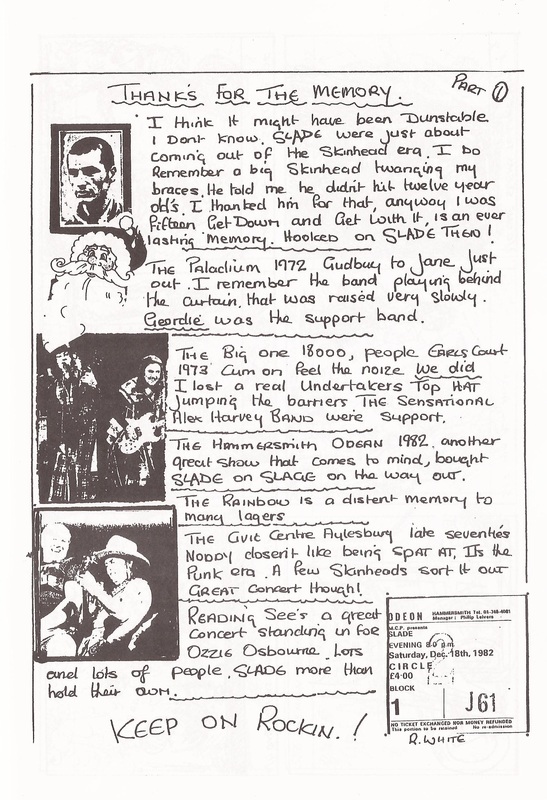 THANKS FOR THE MEMORY.
PART 1
I think It might have been Dunstable
I Dont know. SLADE were just about
coming out of the Skinhead era. I Do
Remember a big Skinhead twanging my
braces. He told me he didnt hit twelve year
old's. I thanked him for that, anyway I was
Fifteen Get Down and Get With It, is an ever
lasting Memory. Hooked on SLADE THEN!
THE Paladium 1972 Gudbuy to Jane Just
out. I remember the band playing behind
the curtain, that was raised very slowly.
Geordie was the support band.
THE Big one 18000, people EARLS Court
1973 Cum on Feel the noize We did
I lost a real Undertakers TOP HAT
Jumping the barriers THE SENSATIONAL
Alex Harvey BAND were Support.
THE HAMMERSMITH ODEAN 1982, another
great show that comes to mind, bought
SLADE on SLAGE on the way out.
THE RAINBOW is a distent memory to
many lagers
THE Civic Centre Aylesbury late seventies
NODDY closerit like being SPAT AT, ITs the
Punk era. A Few Skinheads sort It out
GREAT Concert though!
READING See's a great
Concert standing in foe
OZZIE Osbourne. Lots
and lots of people. SLADE more than
hold their own.
KEEP ON ROCKIN.!
ODEON HAMMERSMITH Tel. 01-748-4081
Manager: Philip Leivers
M.C.P. presents
SLADE
EVENING 8.0 p.m.
Saturday, Dec. 18th, 1982
CIRCLE
£4.00
BLOCK
1 J61
NO TICKET EXCHANGED NOR MONEY REFUNDED
This portion to be retained No re-admission
R. WHITE